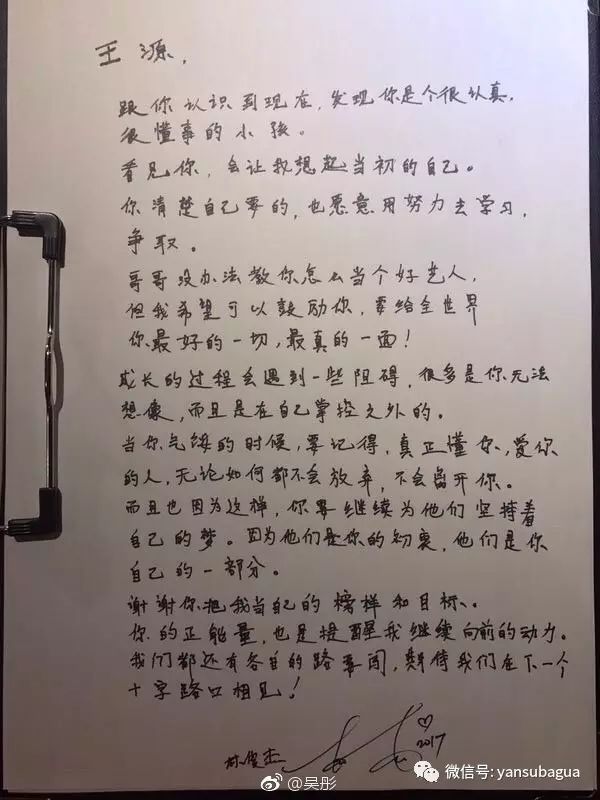 王源，
跟你认识到现在，发现你是个很认真，
很懂事的小孩。
看见你，会让我想起当初的自己。
你清楚自己要的，也愿意用努力去学习，
争取。
哥哥没办法教你怎么当个好艺人，
但我希望可以鼓励你，要给全世界
你最好的一切，最真的一面！
成长的过程会遇到一些阻碍，很多是你无法
想像，而且是在自己掌控之外的。
当你气馁的时候，要记得，真正懂你，爱你
的人，无论如何都不会放弃，不会离开你。
而且也因为这样，你要继续为他们坚持着
自己的梦。因为他们是你的初衷，他们是你
自己的一部分。
谢谢你把我当自己的榜样和目标。
你的正能量，也是提醒我继续向前的动力。
我们都还有各自的路要闯，期待我们在下一个
十字路口相见！
林俊杰
2017
@吴彤
微信号: yansubagua